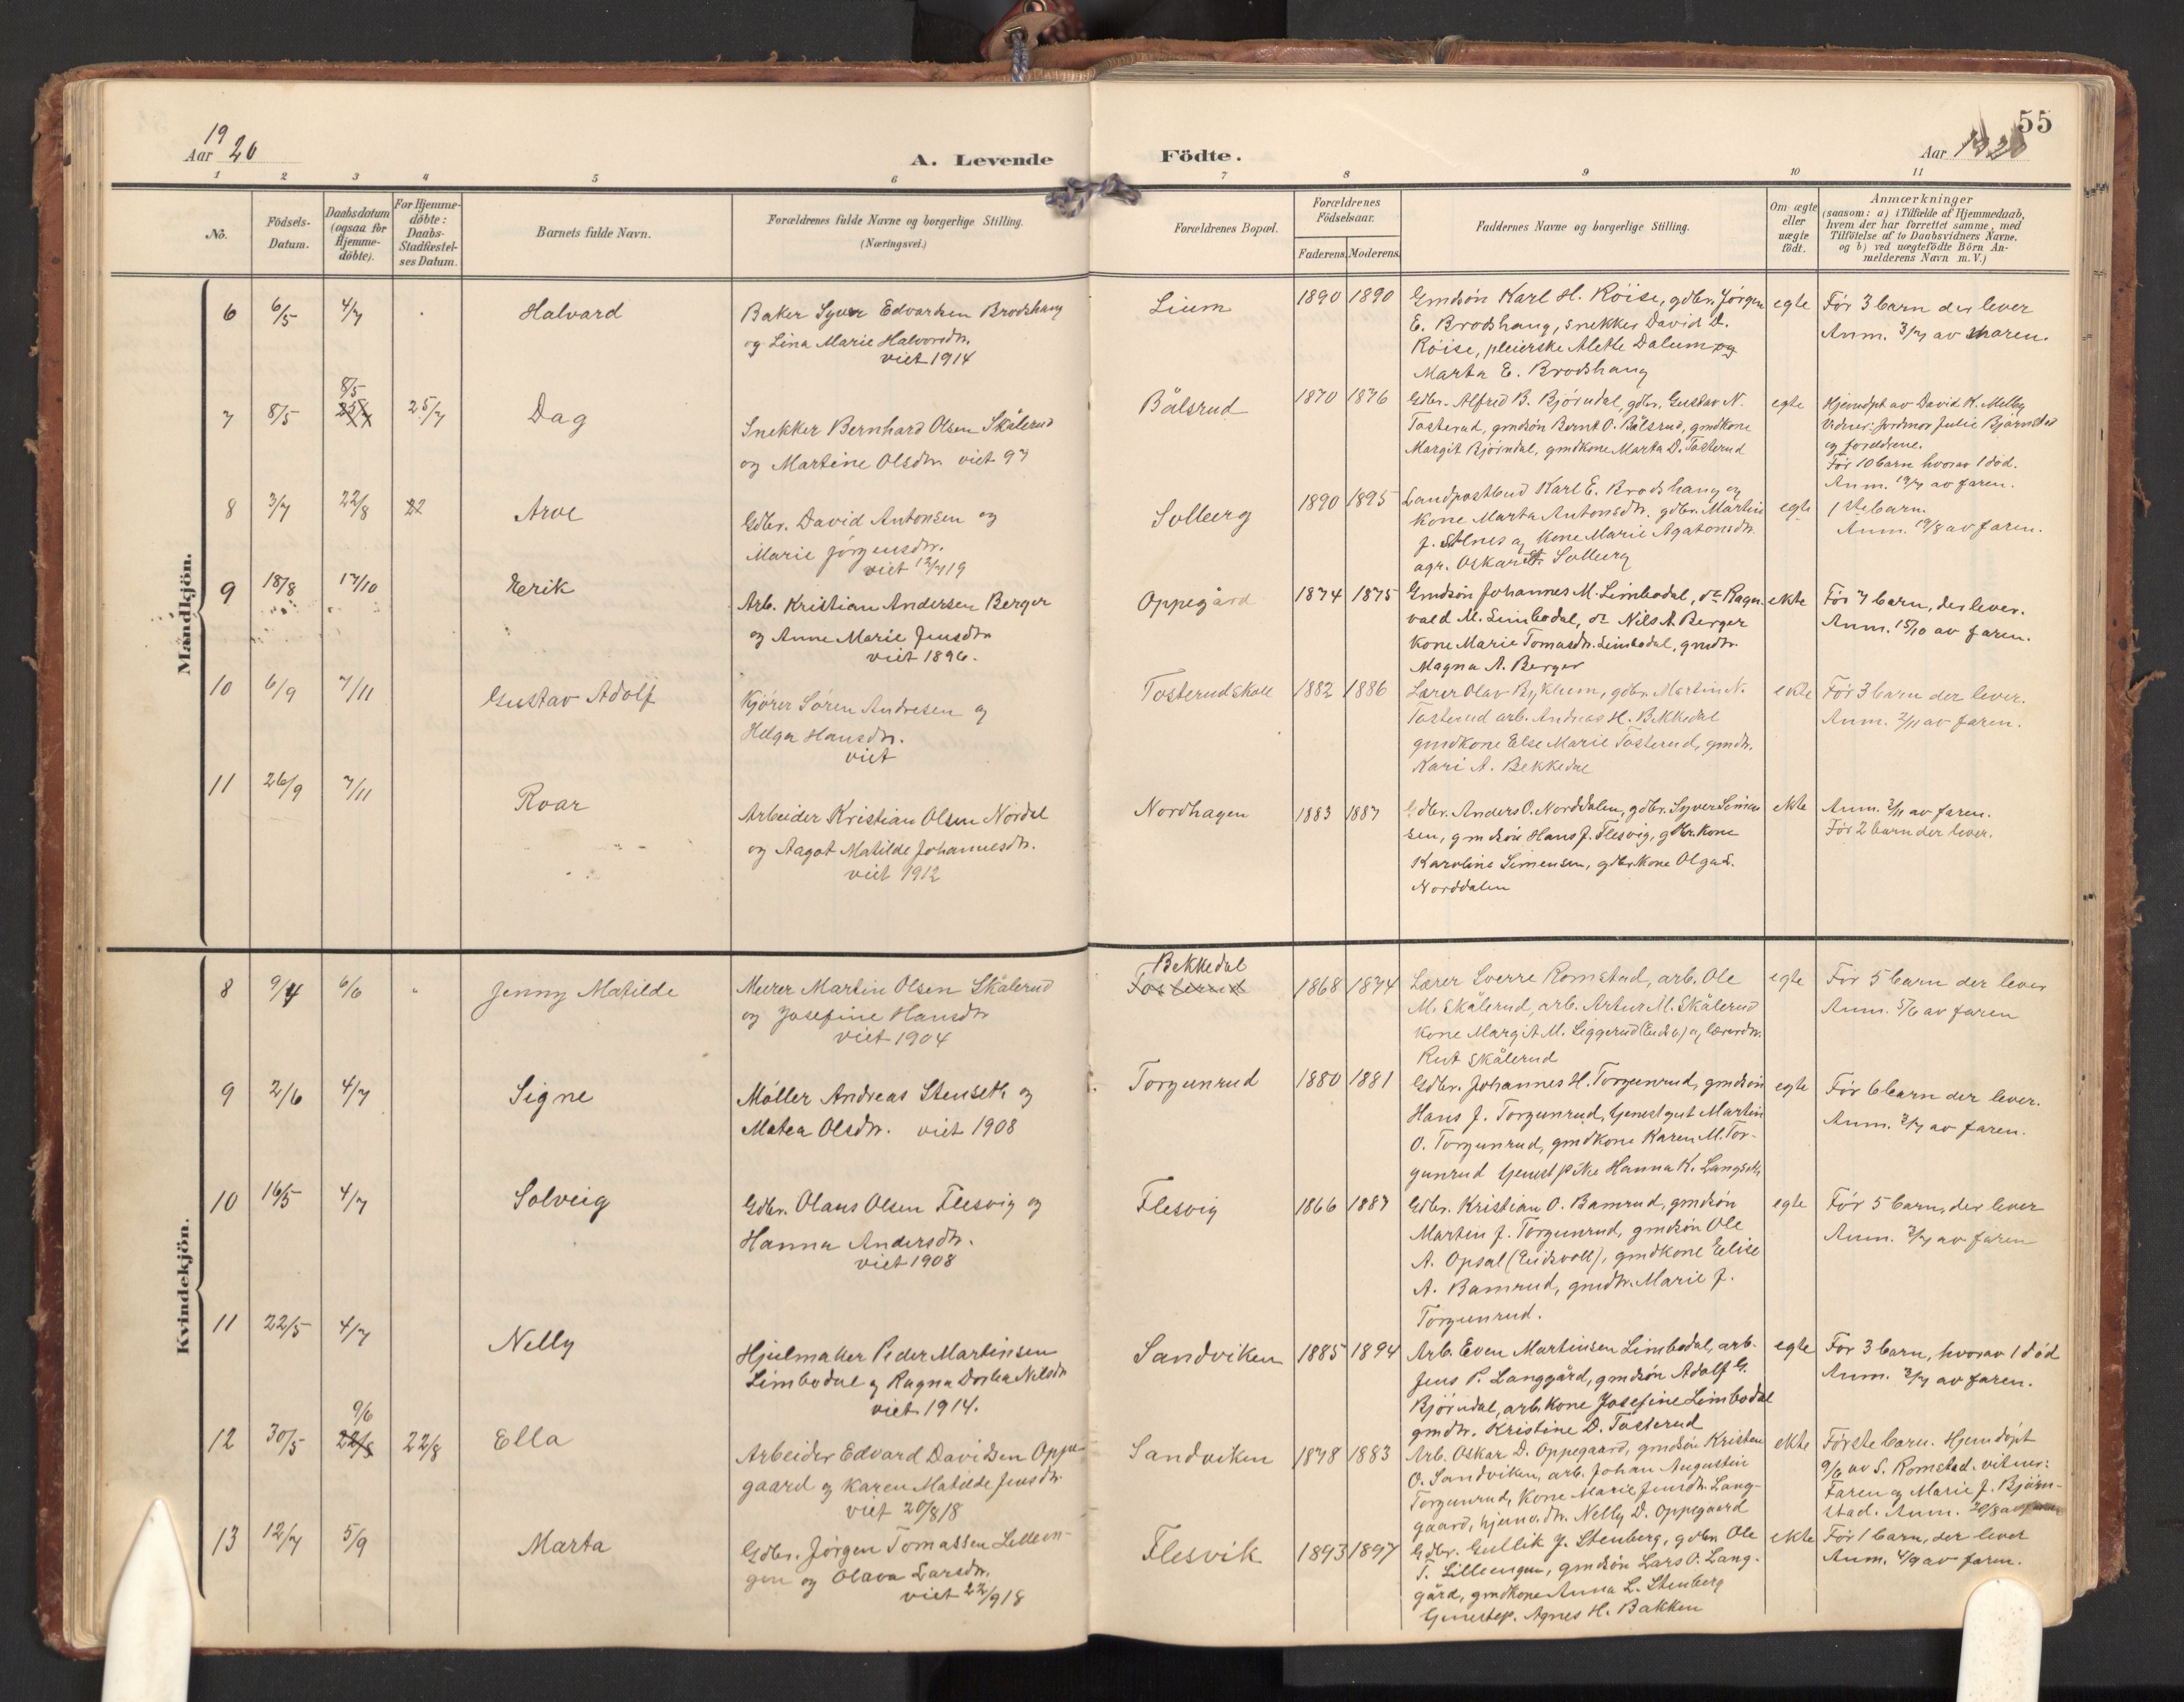 55
19
Aar 20
Aar 1920
A. Levende Födte.
1 2 3 4 5 6 7 8 9 10 11
No.
Födsels-
Datum.
Daabsdatum
(ogsaa for
Hjemme-
döbte).
For Hjemme-
döbte:
Daabs-
Stadfæstel-
ses Datum.
Barnets fulde Navn.
Forældrenes fulde Navne og borgerlige Stilling.
(Næringsvei.)
Forældrenes Bopæl.
Forældrenes
Födselsaar.
Faderens. Moderens.
Faddernes Navne og borgerlige Stilling.
Om ægte
eller
uægte
födt.
Anmærkninger
(saasom: a) i Tilfælde af Hjemmedaab,
hvem der har forrettet samme, med
Tilföielse af to Daabsvidners Navne,
og b) ved uægtefödte Börn An-
melderens Navn m. V.)
Mandkjön.
6 6/5 4/7 Halvard
Baker Syver Edvardsen Brodshaug
og Lina Marie Halvorsdtr.
viet 1914
Lium 1890 1890
Gmdsön Karl H. Röise, gdbr. Jörgen
E. Brodshaug, snekker David A.
Röise, pleierske Alette Dalum og
Marta E. Brodshaug
egte
För 3 barn der lever
Anm. 3/7 av faren.
7 8/5 8/5 25/7 25/7 Dag
Snekker Bernhard Olsen Skålerud
og Martine Olsdtr. viet 97
Bålsrud 1870 1876
Gdbr. Alfred B. Bjørndal, gdbr. Gustav N.
Tosterud, gmdsön Bernt O. Bålsrud, gmdkone
Margit Bjørndal, gmdkone Marta D. Tosterud
egte
Hjemdpt av David K. Melby
Vidner: Jordmor Julie Bjørnstad
og foreldrene.
Før 10 barn hvorav 1 död.
Anm. 19/7 av faren.
8 3/7 22/8 22 Arve
Gdbr. David Antonsen og
Marie Jörgensdtr.
viet 12/7 19
Solberg 1890 1895
Landpostbud Karl E. Brodshaug og
kone Marta Antonsdtr. gdbr. Martin
J. Stenes og kone Marie Agatonsdtr.
agr. Oskar A. Solberg
egte
1ste barn.
Anm. 19/8 av faren.
9 18/8 17/10 Erik
Arb. Kristian Andersen Berger
og Anne Marie Jensdtr
viet 1896.
Oppegård 1874 1875
Gmdsön Johannes M. Limbodal, do Ragn-
vald M. Limbodal, do Nils A. Berger
kone Marie Tomasdtr. Limbodal, gmdtr.
Magna A. Berger
ekte
För 7 barn, der lever.
Anm. 15/10 av faren.
10 6/9 7/11 Gustav Adolf
Kjörer Sören Andresen og
Helga Hansdtr.
viet
Tosterudskole 1882 1886
Lærer Olav Byklum, gdbr. Martin N.
Tosterud arb. Andreas H. Bekkedal
gmdkone Else Marie Tosterud, gmdtr.
Kari A. Bekkedal
ekte
För 3 barn der lever.
Anm. 2/11 av faren.
11 26/9 7/11 Roar
Arbeider Kristian Olsen Nordal
og Aagot Matilde Johannesdtr.
viet 1912
Nordhagen 1883 1887
Gdbr. Anders O. Norddalen, gdbr. Syver Simen
sen, gmdsön Hans J. Flesvig, gdbr.kone
Karoline Simensen, gdbr.kone Olga S.
Norddalen
ekte
Anm. 2/11 av faren.
För 2 barn der lever.
Kvindekjön.
8 9/4 6/6 Jenny Matilde
Murer Martin Olsen Skålerud
og Josefine Hansdtr
viet 1904
Bekkedal
Tosterud
1868 1874
Lærer Sverre Romstad, arb. Ole
M. Skålerud, arb. Artur M. Skålerud
kone Margit M. Liggerud (Eidsv.) og lærerdtr.
Rut Skålerud
egte
For 5 barn der lever
Anm. 5/6 av faren
9 2/6 4/7 Signe
Möller Andreas Stenseth og
Matea Olsdtr. viet 1908
Torgunrud 1880 1881
Gdbr. Johannes H. Torgunrud, gmdsön
Hans J. Torgunrud, tjenestgut Martin
O. Torgunrud, gmdkone Karen M. Tor-
gunrud tjenestpike Hanna K. Langseth
egte
För 6 barn der lever.
Anm. 3/7 av faren.
10 16/5 4/7 Solveig
Gdbr. Olaus Olsen Flesvig og
Hanna Andersdtr.
viet 1908
Flesvig 1866 1887
Gdbr. Kristian O. Bamrud, gmdsön
Martin J. Torgunrud, gmdsön Ole
A. Opsal (Eidsvoll), gmdkone Elise
A. Bamrud, gmdtr. Marie J.
Torgunrud.
egte
För 5 barn, der lever
Anm. 3/7 av faren
11 22/5 4/7 Nelly
Hjulmaker Peder Martinsen
Limbodal og Ragna Dortea Nilsdtr
viet 1914.
Sandviken 1885 1894
Arb. Even Martinsen Limbodal, arb.
Jens P. Langgård, gmdsön Adolf G.
Björndal, arb. kone Josefine Limbodal
gmdtr. Kristine D. Tosterud
egte
For 3 barn, hvorav 1 död
Anm. 3/7 av faren.
12 30/5 9/6 22/8 22/8 Ella
Arbeider Edvard Davidsen Oppe-
gaard og Karen Matilde Jensdtr
viet 20/8 18
Sandviken 1878 1883
Arb. Oskar D. Oppegaard, gmdsön Kristen
O. Sandviken, arb. Johan Augustin
Torgunrud, kone Marie Jensdtr. Lang-
gaard, hjemv. dtr. Nelly D. Oppegaard
ekte
Förste barn. Hjemdöpt
9/6 av S. Romstad. vitner:
Faren og Marie J. Bjørn-
stad. Anm. 20/8 av faren
13 12/7 5/9 Marta
Gdbr. Jörgen Tomassen Lilleen-
gen og Olava Larsdtr.
viet 22/9 18
Flesvik 1893 1897
Gdbr. Gullik J. Stenberg, gdbr. Ole
T. Lilleengen, gmdsön Lars O. Lang-
gård, gmdkone Anna L. Stenberg
Agnes H. Bakken
ekte
För 1 barn, der lever
Anm. 4/9 av faren.